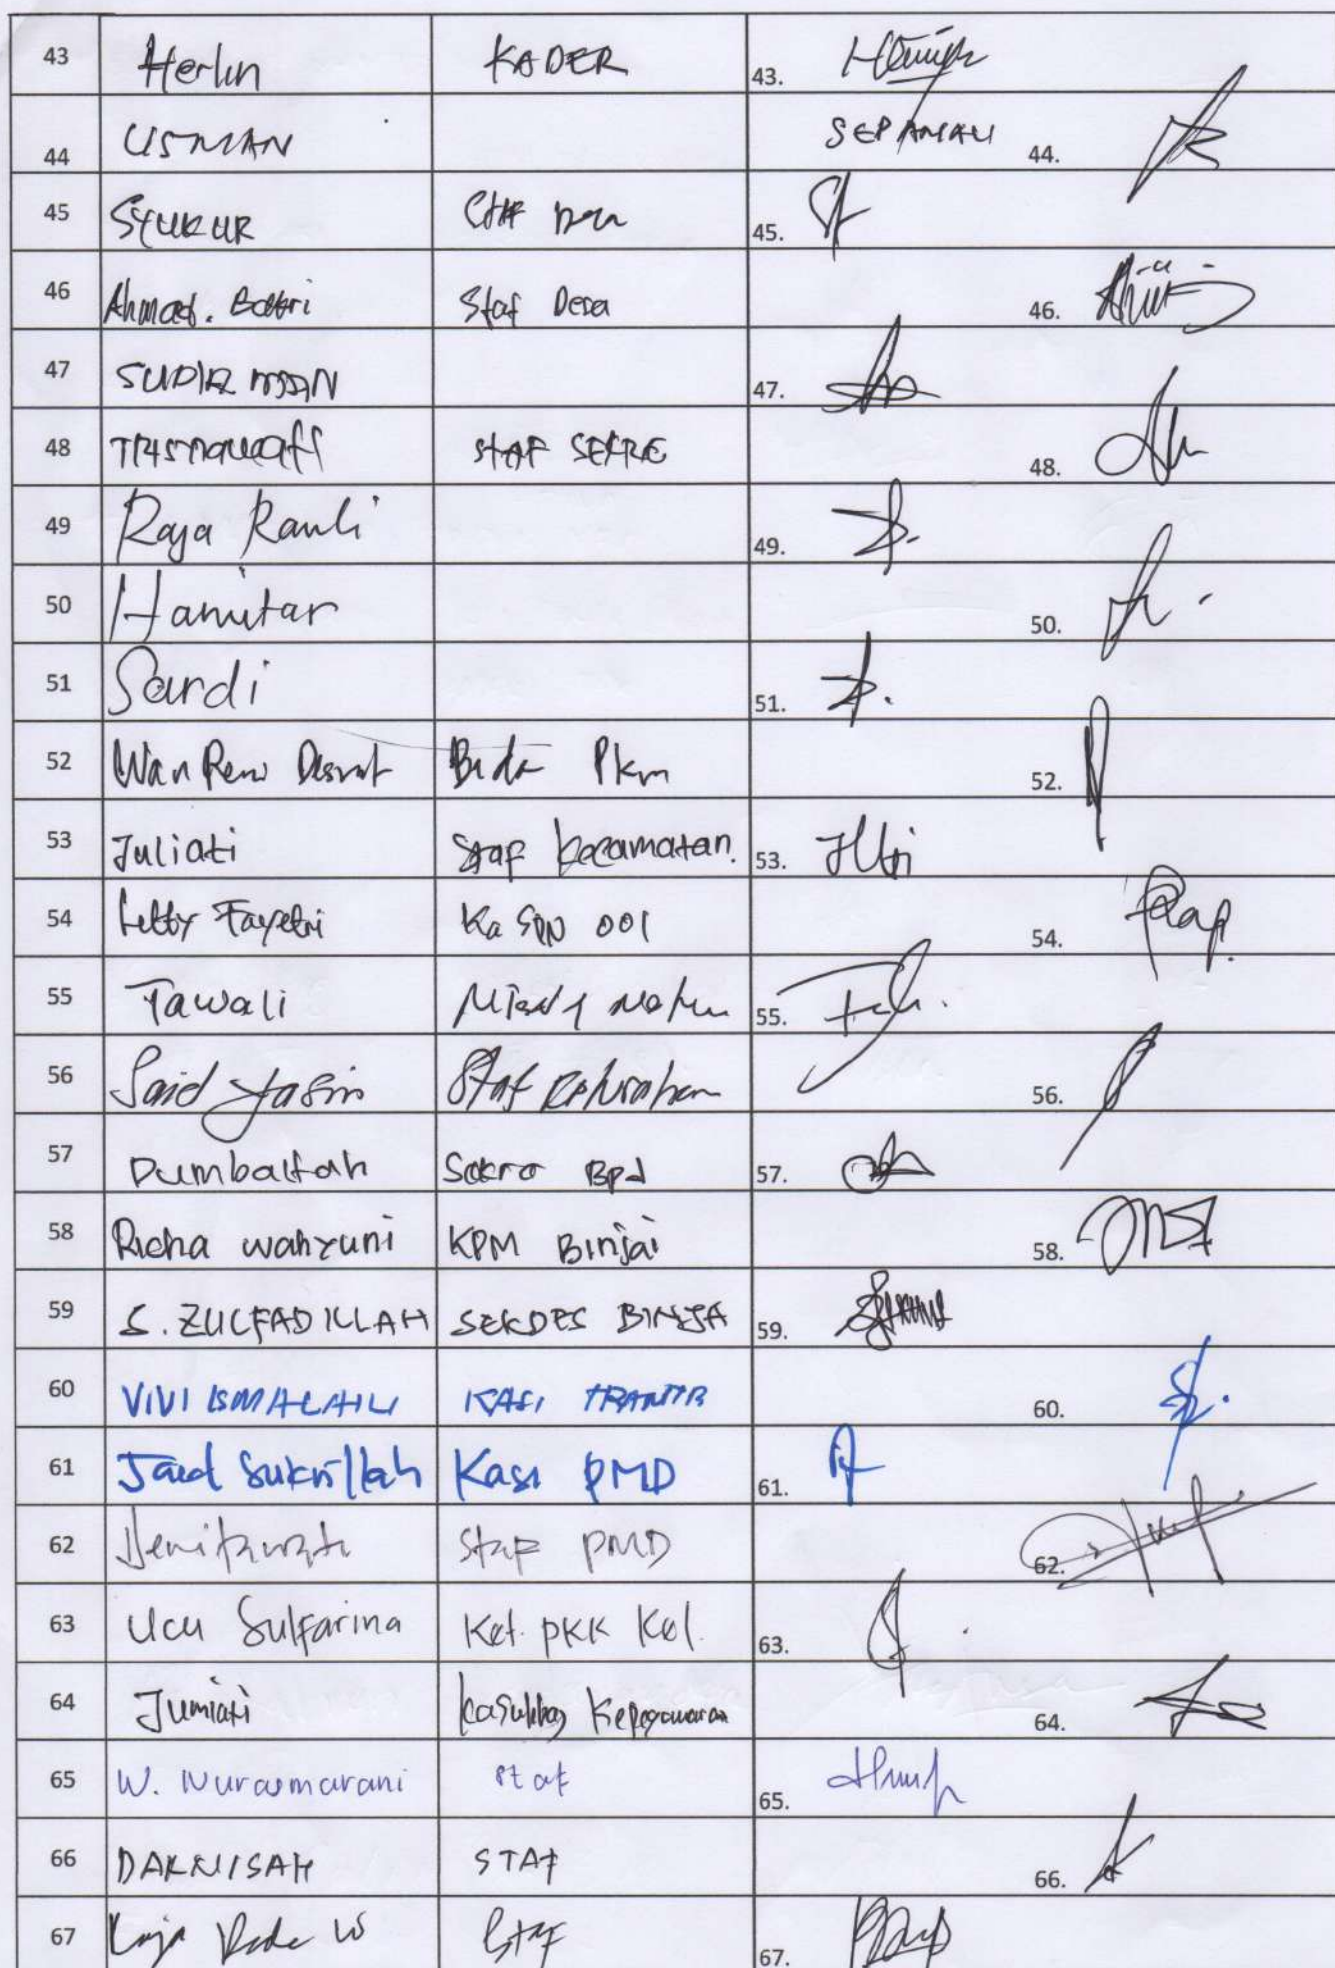 43 Herlin KADER 43.
44 USMAN SEPAMAU 44.
45 SYUKUR 45.
46 Ahmad. Bakri Staf Desa 46.
47 SUDIRMAN 47.
48 STAF SEKRE 48.
49 Raja Ramli 49.
50 Hamitar 50.
51 Sardi 51.
52 Wan Reni Pkm 52.
53 Juliati Staf Kecamatan. 53.
54 Ka SDN 001 54.
55 Tawali 55.
56 Said Yasin Staf Kelurahan 56.
57 Dumbaitah Sekre Bpd 57.
58 Richa wahyuni KPM Binjai 58.
59 S. ZULFADILLAH SEKDES BINJA 59.
60 VIVI ISMALAILI KASI TRANTIB 60.
61 Said Sukrillah Kasi PMD 61.
62 Staf PMD 62.
63 Ucu Sulfarina Ket. PKK Kel. 63.
64 Jumiati Kasubbag Kepegawaian 64.
65 W. Nurasmarani Staf 65.
66 DARNISAH STAF 66.
67 Staf 67.